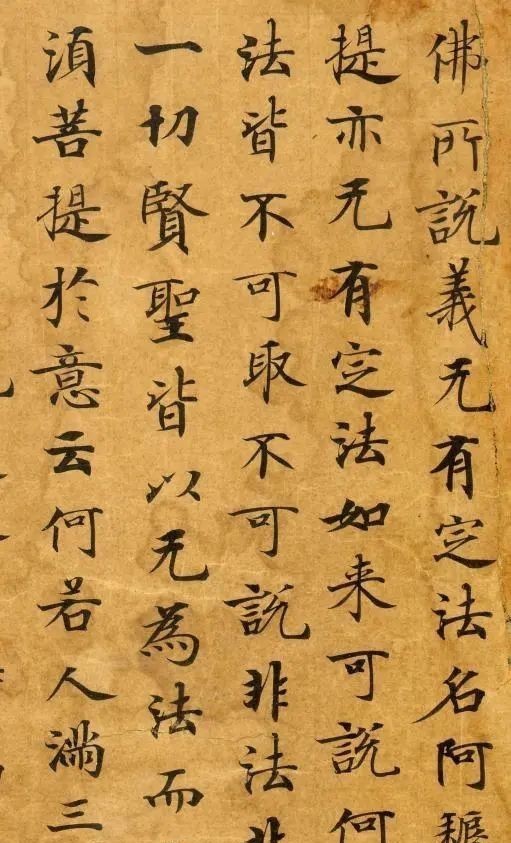 佛所說義无有定法名阿耨
提亦无有定法如来可說何
法皆不可取不可說非法非
一切賢聖皆以无為法而
湏菩提於意云何若人滿三